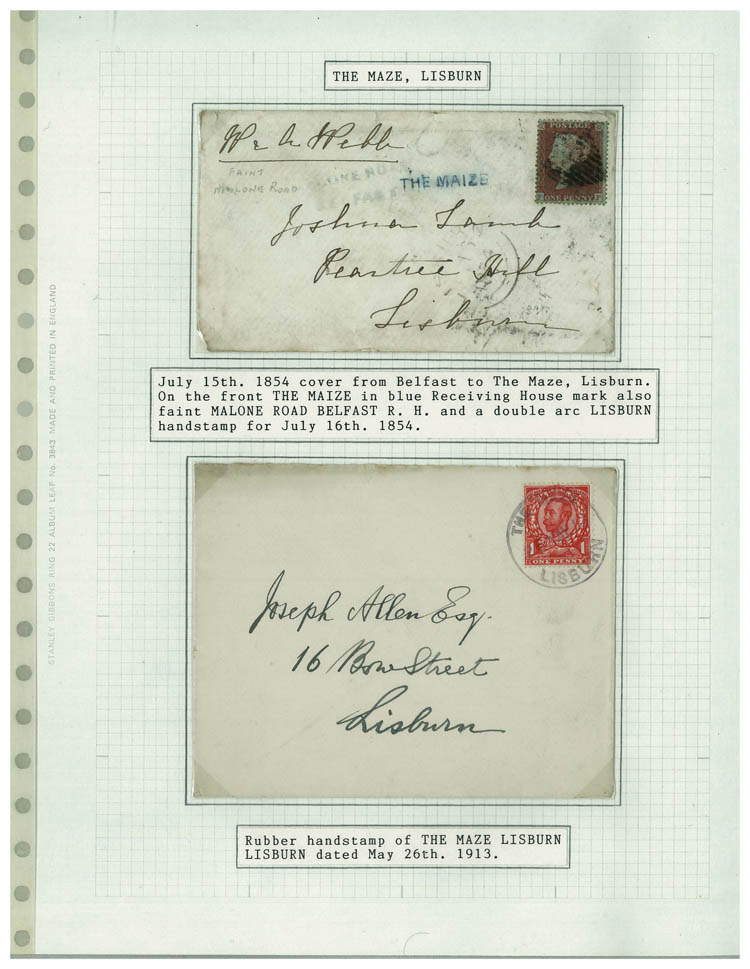 THE MAZE, LISBURN
Wr A Webb
FAINT
MALONE ROAD
LONE ROAD
FAST
THE MAIZE
POSTAGE
ONE PENNY
Joshua Lamb
Peartree Hill
Lisburn
July 15th. 1854 cover from Belfast to The Maze, Lisburn.
On the front THE MAIZE in blue Receiving House mark also
faint MALONE ROAD BELFAST R. H. and a double arc LISBURN
handstamp for July 16th. 1854.
THE
1 1
ONE PENNY
LISBURN
Joseph Allen Esq.
16 Bow Street
Lisburn
Rubber handstamp of THE MAZE LISBURN
LISBURN dated May 26th. 1913.
STANLEY GIBBONS RING 22 ALBUM LEAF No. 3843 MADE AND PRINTED IN ENGLAND